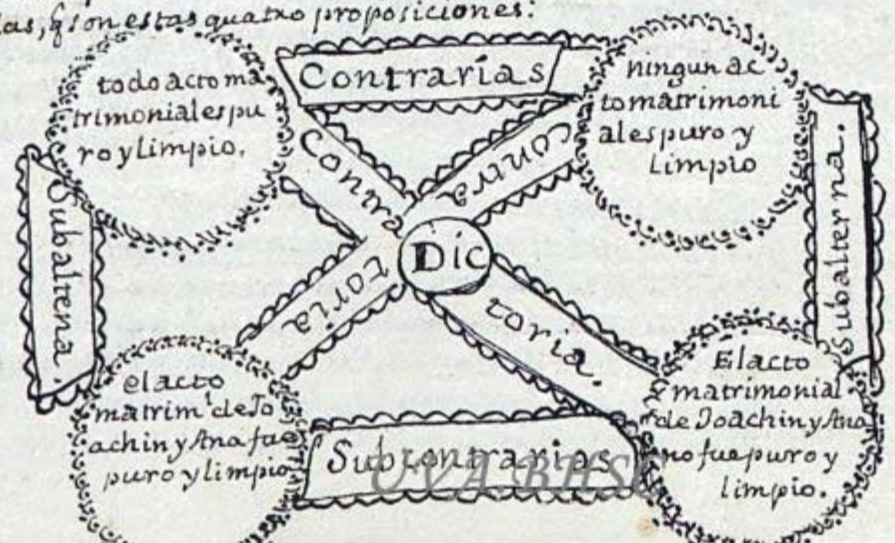 las, q̃ son estas quatro proposiciones:
todo acto ma
trimonial es pu
ro y limpio.
Contrarias
ningun ac
to matrimoni
al es puro y
Limpio
Contra
Contra
Dic
toria
toria.
Subaltena.
Subalterna.
el acto
matrim.l de Jo
achin y Ana fue
puro y limpio
Subcontrarias
El acto
matrimonial
de Joachin y Ana
no fue puro y
limpio.
UVA.BHSC